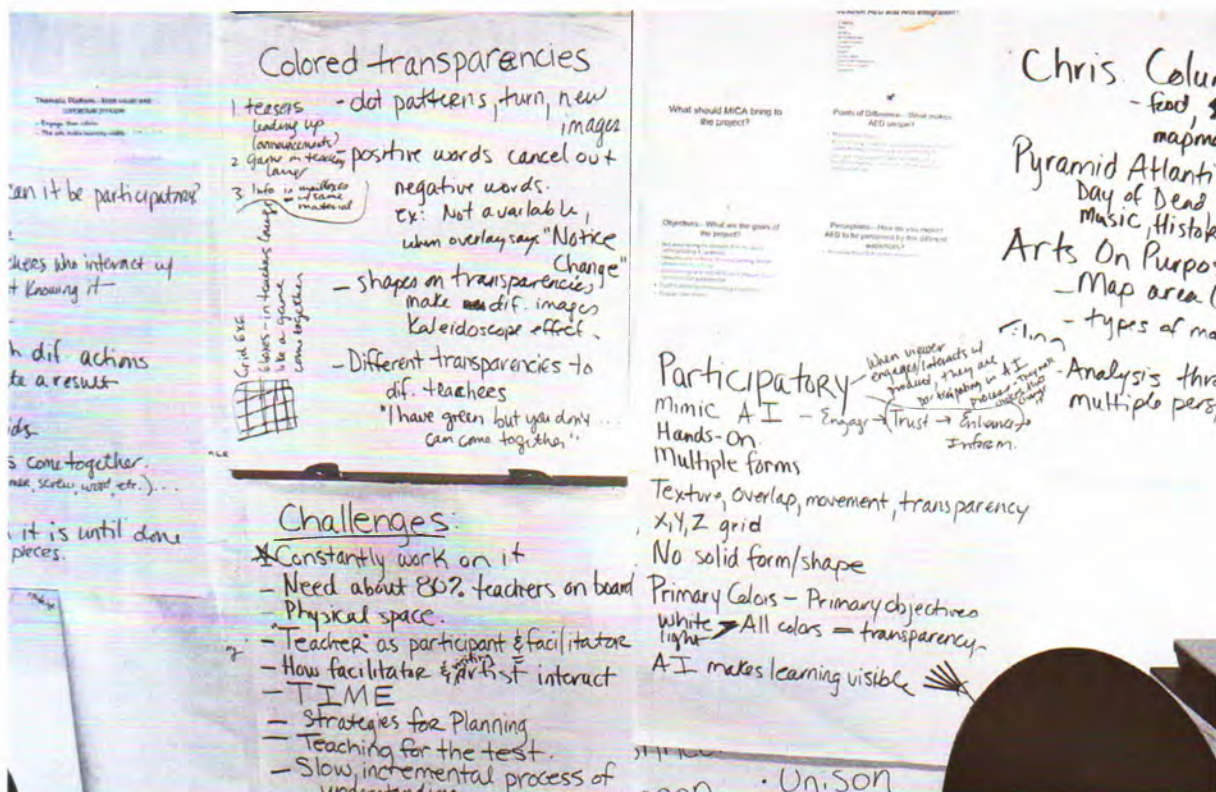 Thematic Platform - Both visual and
conceptual principle
- Engage, then inform
- The arts make learning visible
can it be participatory?
chers who interact w/
t knowing it
dif. actions
te a result
ids
s come together.
screw, word, etc.)...
it is until done
pieces.
Colored transparencies
- dot patterns, turn, new
images
1. teasers
leading up
(announcements)
2. game in teachers
lang
3. Info in mailboxes
w/ same
material
- positive words cancel out
negative words.
ex: Not available,
when overlay says "Notice
Change"
- Shapes on transparencies
make dif. images
Kaleidoscope effect.
- Different transparencies to
dif. teachees
"I have green but you don't...
can come together"
Grid 6x6
boxes - in teachers lounge
like a game
come together
Challenges:
Constantly work on it
- Need about 80% teachers on board
- Physical space.
- "Teacher" as participant & facilitator
- How facilitator & visiting artist interact
- TIME
- Strategies for Planning
- Teaching for the test.
- Slow, incremental process of
understanding
What should MICA bring to
the project?
Points of Difference - What makes
AED unique?
Objectives - What are the goals of
the project?
Perceptions - How do you expect
AED to be perceived by the different
audiences?
Participatory
When viewer
engages/interacts w/
product, they are
participating in AI
process
Mimic AI - Engage → Trust → Enhance →
Inform.
Hands-On
Multiple forms
Texture, overlap, movement, transparency
X,Y,Z grid
No solid form/shape
Primary Colors - Primary objectives
white light → All colors = transparency
AI makes learning visible
Chris Colum
- food,
mapma
Pyramid Atlanti
Day of Dead
Music, Histor
Arts On Purpo
- Map area (
- types of ma
- Analysis thro
multiple persp
. Unison